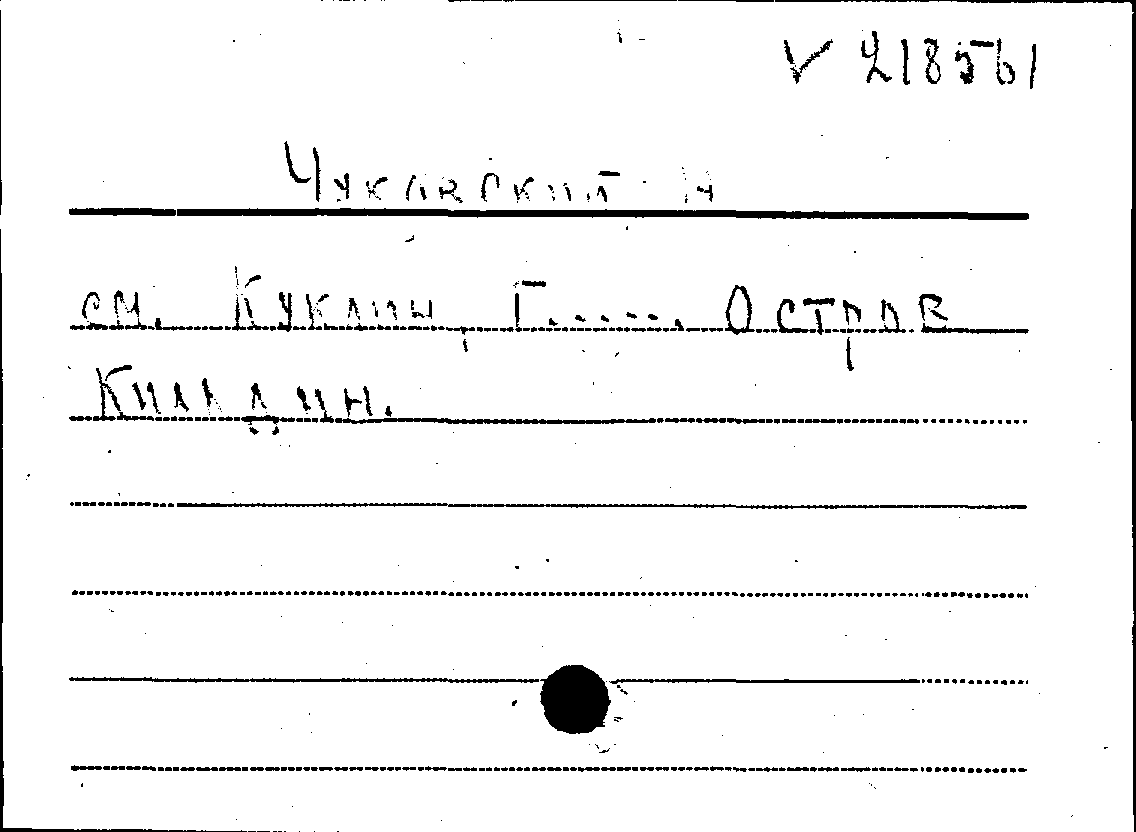 V 218561
Чукавский Н
см. Куклин, Г...... Остров
Килдин.